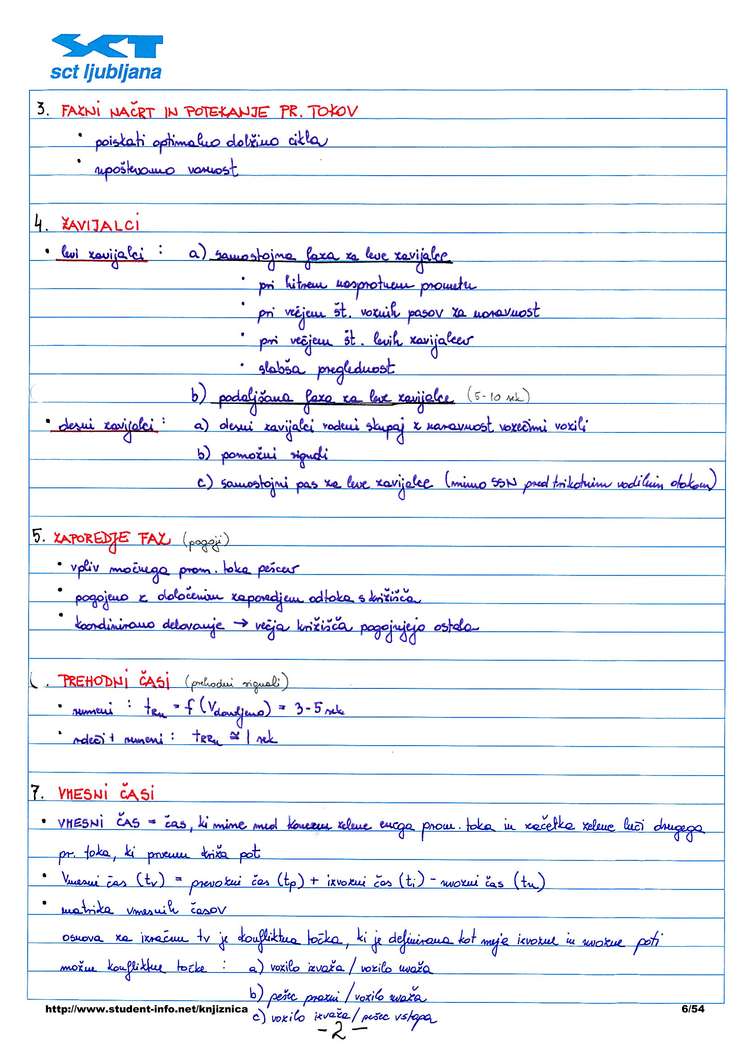 SCT
sct ljubljana
3. FAZNI NAČRT IN POTEKANJE PR. TOKOV
• poiskati optimalno dolžino cikla
• upoštevamo varnost
4. ZAVIJALCI
• levi zavijalci : a) samostojna faza za leve zavijalce
• pri hitrem nasprotnem prometu
• pri večjem št. voznih pasov za naravnost
• pri večjem št. levih zavijalcev
• slabša preglednost
b) podaljšana faza za leve zavijalce (5-10 sek)
• desni zavijalci : a) desni zavijalci vodeni skupaj z naravnost vozečimi vozili
b) pomožni signali
c) samostojni pas za leve zavijalce (mimo SSN pred trikotnim vodilnim otokom)
5. ZAPOREDJE FAZ (pogoji)
• vpliv močnega prom. toka pešcev
• pogojeno z določenim zaporedjem odtoka s križišča
• koordinirano delovanje → večja križišča pogojujejo ostala
. PREHODNI ČASI (prehodni signali)
• rumeni : tRu = f (Vdovoljena) = 3-5 sek
• rdeči + rumeni : tRRu ≅ 1 sek
7. VMESNI ČASI
• VMESNI ČAS = čas, ki mine med koncem zelene enega prom. toka in začetka zelene luči drugega
pr. toka, ki prvemu križa pot
• Vmesni čas (tv) = prevozni čas (tp) + izvozni čas (ti) - uvozni čas (tu)
• matrika vmesnih časov
osnova za izračun tv je konfliktna točka, ki je definirana kot meja izvozne in uvozne poti
možne konfliktne točke : a) vozilo izvaža / vozilo uvaža
b) pešec prazni / vozilo uvaža
http://www.student-info.net/knjiznica 6/54
c) vozilo izvaža / pešec vstopa
- 2 -